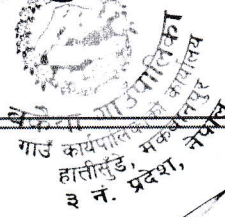 बकैया गाउँपालिका
गाउँ कार्यपालिकाको कार्यालय
हात्तीसुँडे, मकवानपुर
३ नं. प्रदेश, नेपाल